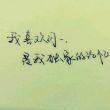 我喜欢你、
是我独家的记忆